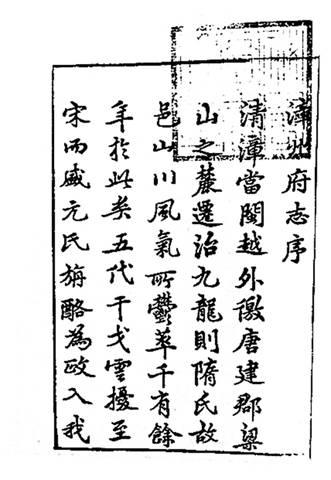 漳州府志序
清漳當閩越外徼唐建郡梁
山之麓遷治九龍則隋氏故
邑山川風氣所鬱萃千有餘
年於此矣五代干戈雲擾至
宋而盛元氏旃酪為政入我